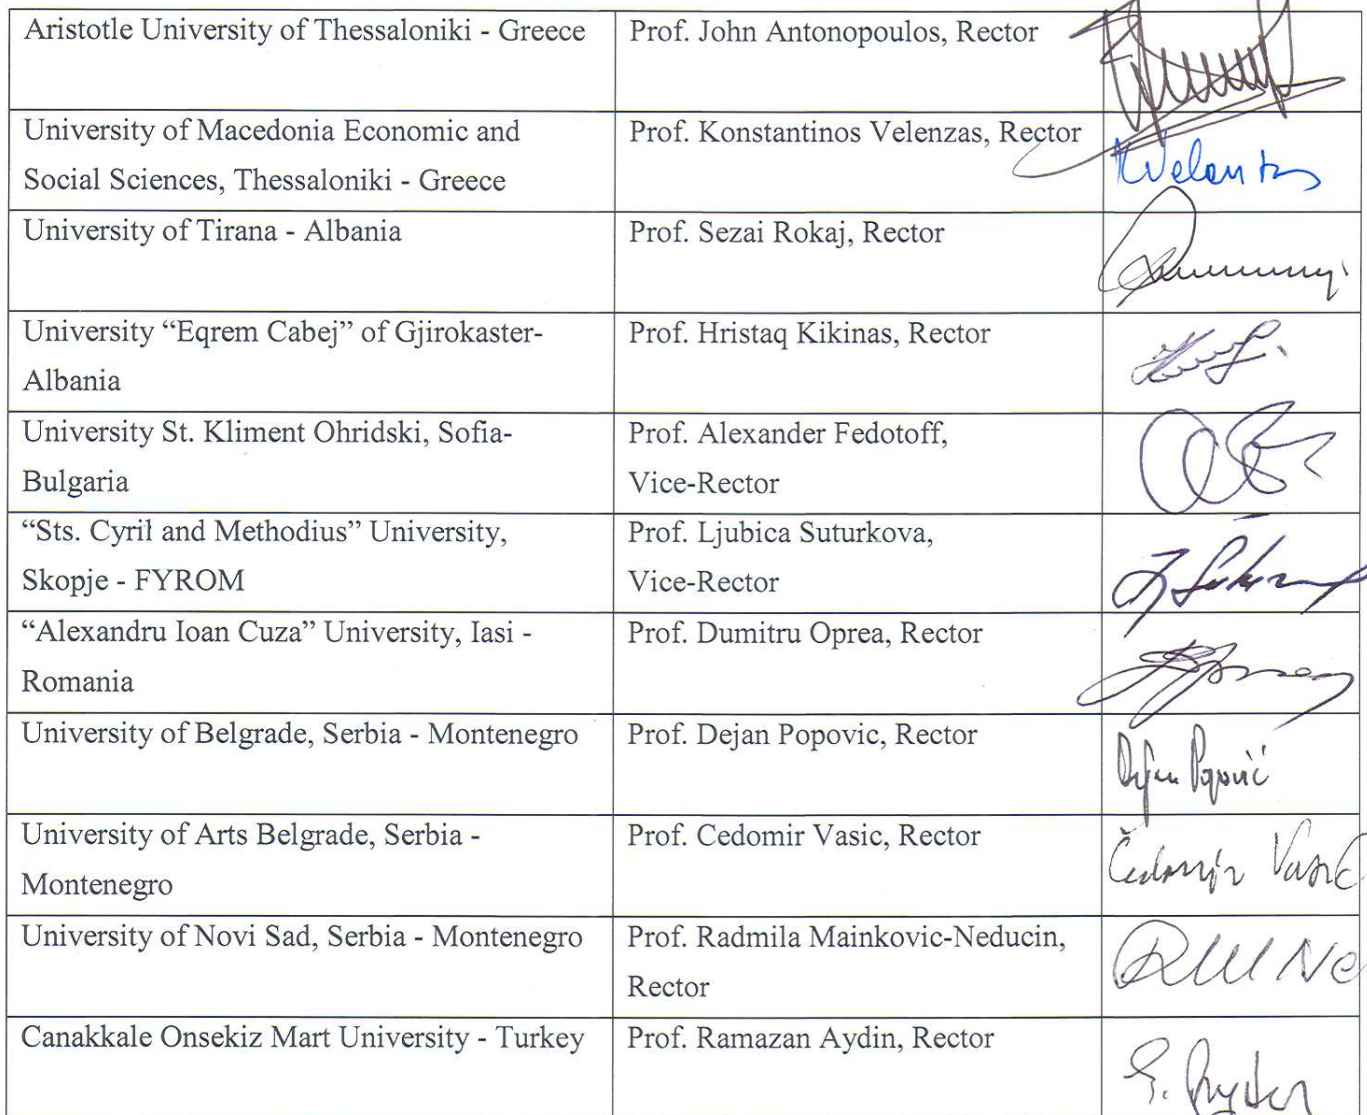 Aristotle University of Thessaloniki - Greece
Prof. John Antonopoulos, Rector
University of Macedonia Economic and
Social Sciences, Thessaloniki - Greece
Prof. Konstantinos Velenzas, Rector
University of Tirana - Albania
Prof. Sezai Rokaj, Rector
University “Eqrem Cabej” of Gjirokaster-
Albania
Prof. Hristaq Kikinas, Rector
University St. Kliment Ohridski, Sofia-
Bulgaria
Prof. Alexander Fedotoff,
Vice-Rector
“Sts. Cyril and Methodius” University,
Skopje - FYROM
Prof. Ljubica Suturkova,
Vice-Rector
“Alexandru Ioan Cuza” University, Iasi -
Romania
Prof. Dumitru Oprea, Rector
University of Belgrade, Serbia - Montenegro
Prof. Dejan Popovic, Rector
Dejan Popović
University of Arts Belgrade, Serbia -
Montenegro
Prof. Cedomir Vasic, Rector
Čedomir Vasić
University of Novi Sad, Serbia - Montenegro
Prof. Radmila Mainkovic-Neducin,
Rector
Canakkale Onsekiz Mart University - Turkey
Prof. Ramazan Aydin, Rector